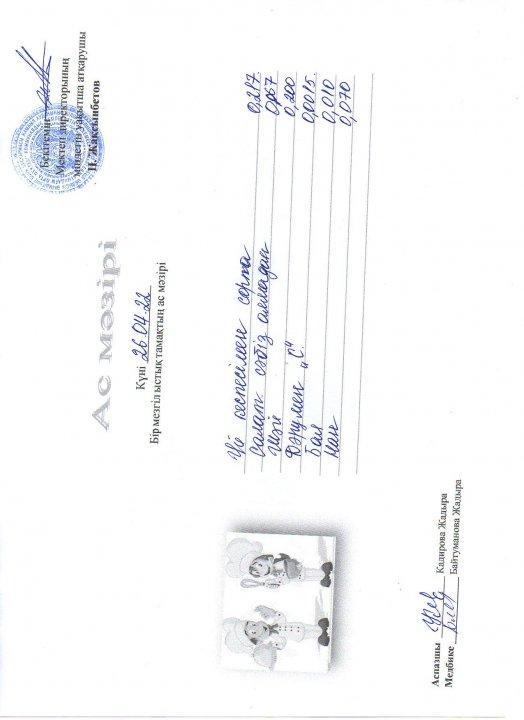 Бекітемін
Мектеп директорының
міндетін уақытша атқарушы
Н. Жақсыбетов
Ас мәзірі
Күні 26.04.22
Бір мезгіл ыстық тамақтың ас мәзірі
Үй кеспесімен сорпа 0,217
Салат сәбіз алмадан 0,067
Шай 0,200
Дәрумен "С" 0,0015
Бал 0,010
Нан 0,070
Аспазшы Кадирова Жадыра
Медбике Байтуманова Жадыра